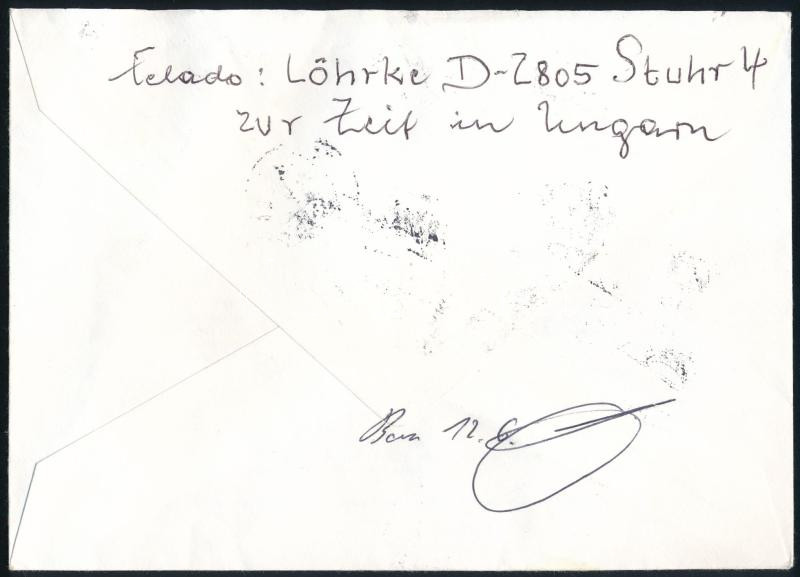 Felado: Löhrke D-2805 Stuhr 4
zur Zeit in Ungarn
12. 6.